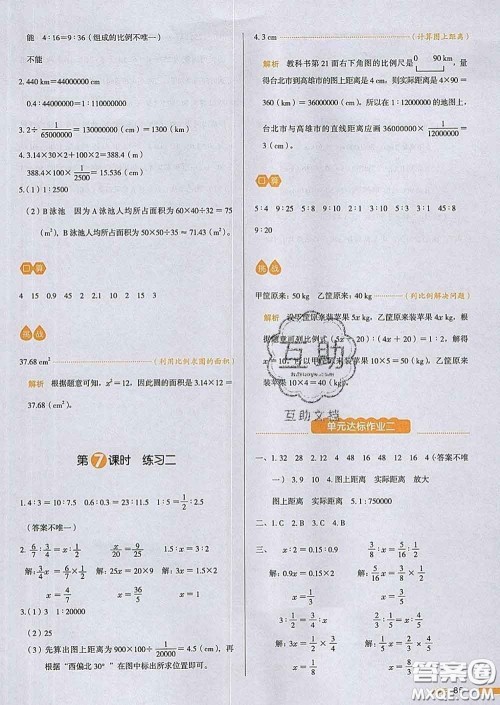 能 4∶16=9∶36(组成的比例不唯一)
不能
2. 440 km=44000000 cm
0.4∶44000000=1∶110000000
3. 2÷1/65000000=130000000(cm)=1300(km)
4. 3.14×30×2+100×2=388.4(m)
388.4 m=38840 cm
5.(1)1∶2500
(2)B泳池 因为A泳池人均所占面积为60×40÷32=75
(m²),B泳池人均所占面积为50×50÷35≈71.43(m²)。
口算
4 15 0.9 45 2 2.1 10 2 15
挑战
37.68 cm²(利用比例求圆的面积)
解析 根据题意可知,x²=12,因此圆的面积是3.14×12=
37.68(cm²)。
第7课时 练习二
1. 4∶3=10∶7.5 0.6∶0.3=23∶11.5 1∶5=3∶15
(答案不唯一)
2. 6/7∶3/4=x∶1/2 x/20=9/25 1.5∶3=x∶3.4
解: 解:25x=20×9 解:3x=1.5×3.4
x=4/7 x=7.2 x=1.7
3.(1)3 1∶20000
(2)25
(3)先算出图上距离900×100÷1/20000=4.5(cm),再
根据“西偏北30°”在图中标出所求位置即可。
4. 3 cm(计算图上距离)
解析 教科书第21面右下角图的比例尺是0 90km,量
得台北市到高雄市的图上距离是4 cm,则实际距离是4×90=
360(km)=36000000(cm),所以在1∶12000000的地图上,
台北市与高雄市的直线距离应画36000000×1/12000000
=3(cm)。
口算
5∶4 9∶25 5∶2 5∶2 3∶4 3∶1 45∶8
9∶20
挑战
甲筐原来:50 kg 乙筐原来:40 kg(列比例解决问题)
解析 设甲筐原来装苹果5x kg,乙筐原来装苹果4x kg,
根据题意可列比例式(5x-20)∶(4x+20)=1∶2,解得
x=10,因此甲筐原来装苹果10×5=50(kg),乙筐原来装苹
果10×4=40(kg)。
互助
互助文档
单元达标作业二
一、1. 32 28 2. 16 3. 1∶2=2∶4(答案不唯一)
4. 图上距离 实际距离 图上距离 实际距离 放大
图上距离 实际距离 5. 1∶750000
二、1. C 2. D 3. A 4. B
三、x∶2=0.15∶0.9 3/8∶x=5/16∶3/5
解:0.9x=2×0.15 解:5/16x=3/8×3/5
x=1/3 x=18/25
3∶1/2=3/4∶x
解:3x=1/2×3/4
x=1/8
答案圈
MXQE.COM